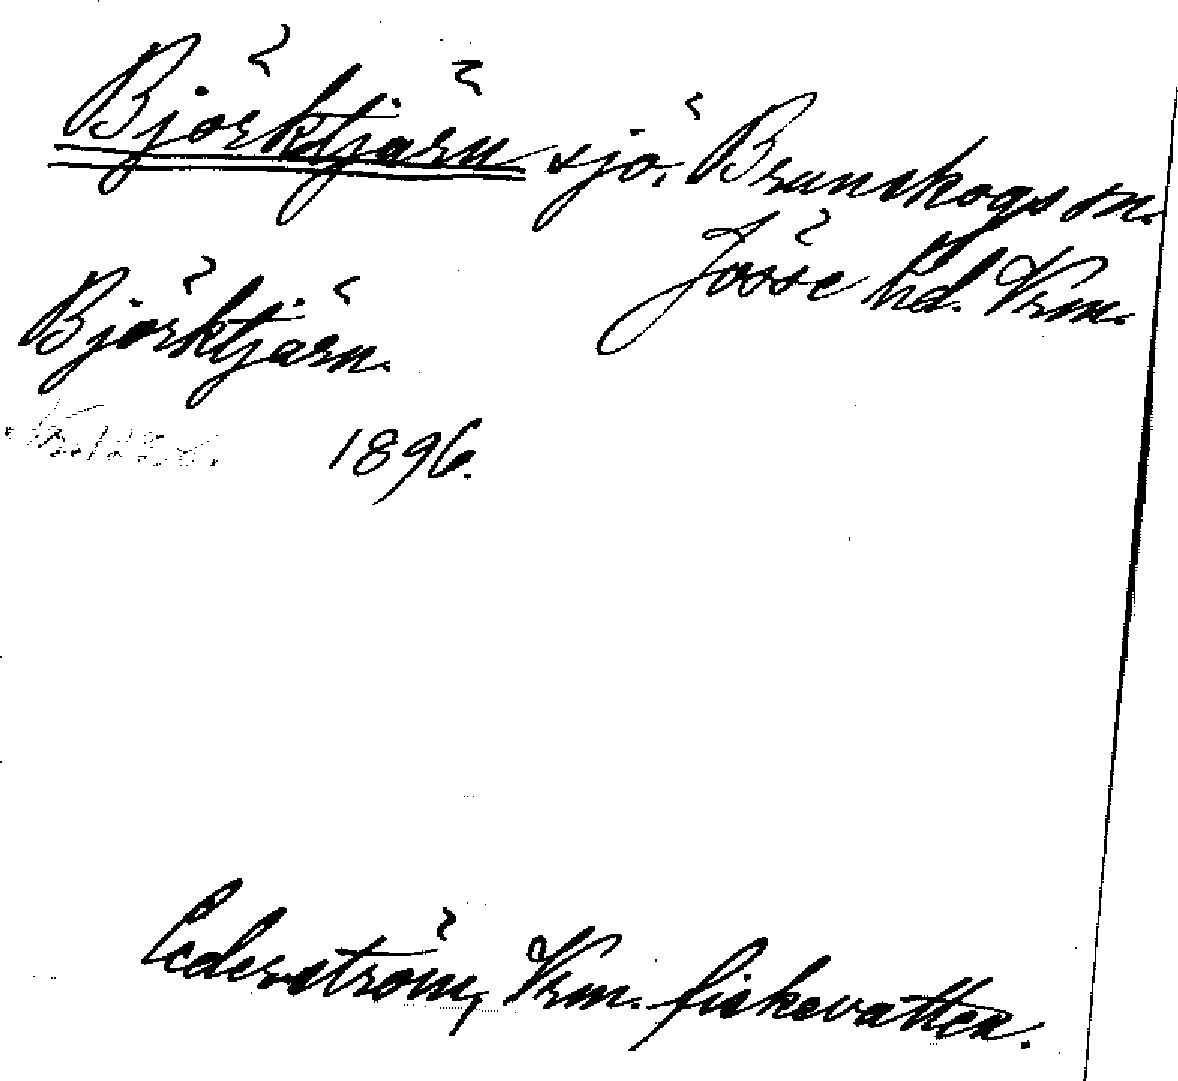 Björktjärn sjö, Brunskogs sn.
Jösse hd. Vrm.
Björktjärn.
1896.
Cederström, Vrm. fiskevatten.